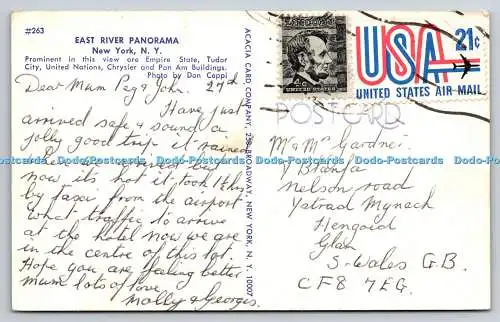 #263
EAST RIVER PANORAMA
New York, N. Y.
Prominent in this view are Empire State, Tudor
City, United Nations, Chrysler and Pan Am Buildings.
Photo by Don Cappi
Dear Mum Peg & John. 27th
Have just
arrived safe & sound a
jolly good trip it rained
when we arrived but
now it's hot it took 1 ½ hrs
by taxi from the airport
what traffic to arrive
at the hotel now we are
in the centre of this lot.
Hope you are feeling better
mum lots of love
Molly & George.
ACACIA CARD COMPANY, BROADWAY, NEW YORK, N. Y. 10007
4¢
UNITED STATES
USA 21¢
UNITED STATES AIR MAIL
POSTCARD
Mr & Mrs Gardner
nelson road
Ystrad Mynach
Hengoed
Glam
S-Wales G.B.
CF8 7EG.
Dodo-Postcards Dodo-Postcards Dodo-Postcards Dodo-Postcards Dodo-Postcards